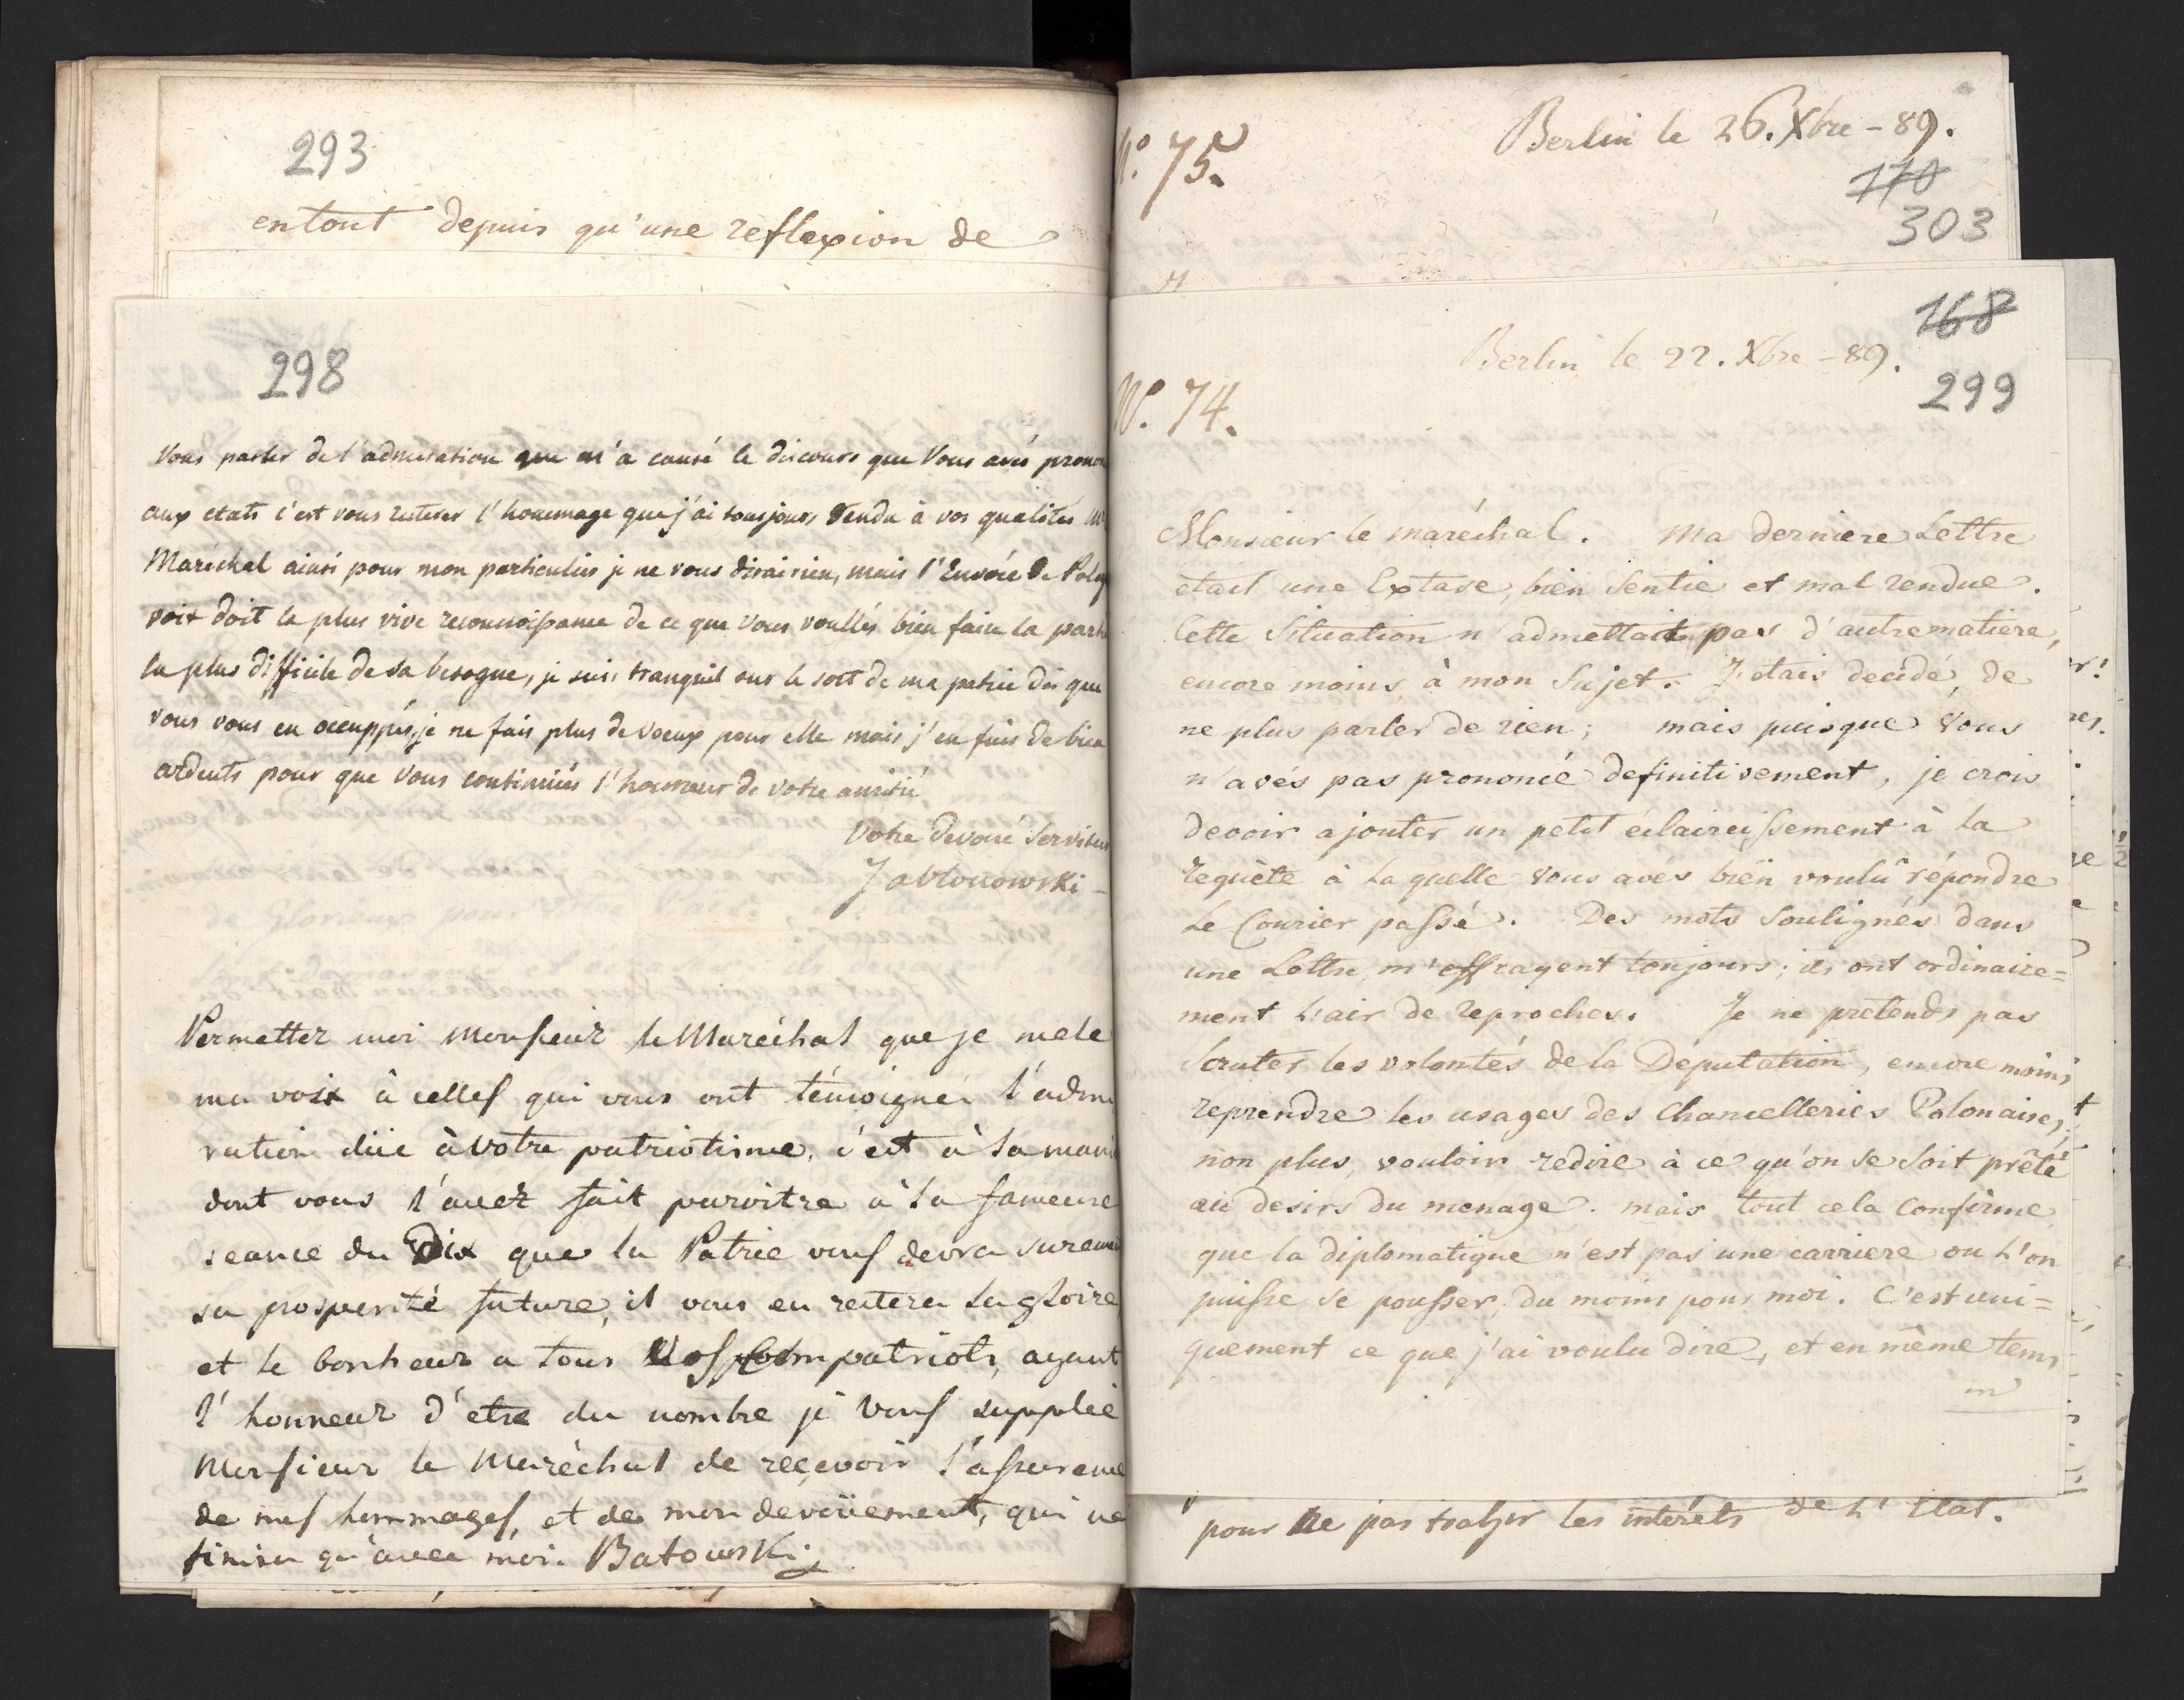 293
en tout depuis qu'une reflexion de
298
Vous parler de l'admiration que m'a causé le discours que Vous avés pronon
aux etats c'est vous reiterer l'hommage que j'ai tousjours rendu à vos qualités Mr
Maréchal ainsi pour mon particulier je ne vous dirai rien, mais l'Envoié de Polog
doit la plus vive reconnoissance de ce que Vous voullés bien faire la parti
la plus difficile de sa besogne, je suis tranquil sur le sort de ma patrie dès que
vous vous en occuppés, je ne fais plus de voeux pour elle mais j'en fais de bien
ardents pour que Vous continuiés l'honneur de votre amitié
Votre devoué Serviteur
Jabłonowski -
Permettez moi Monsieur le Maréchal que je mele
ma voix à celles qui vous ont témoigné l'admi
ration düe à votre patriotisme, c'est à la mani
dont vous l'avez fait paroitre à la fameuse
seance du Dix que la Patrie vous devra surem
sa prosperité future, il vous en restera la gloire
et le bonheur a tous Vos Compatriots, ayant
l'honneur d'etre du nombre je Vous supplie
Monsieur le Maréchal de reçevoir l'assurance
de mes hommages, et de mon devoüement, qui ne
finira qu'avec moi. Batowski
N.° 75.
Berlin le 26. Xbre - 89.
170
303
168
Berlin le 22. Xbre - 89.
299
N.° 74.
Monsieur le maréchal. Ma derniere Lettre
etait une Extase, bien sentie et mal rendue.
Cette Situation n'admettait pas d'autre matiere,
encore moins à mon Sujet. J'etais decidé, de
ne plus parler de rien; mais puisque Vous
n'avés pas prononcé definitivement, je crois
devoir ajouter un petit éclaircissement à la
requète à laquelle vous avés bien voulû répondre
le Courier passé. Des mots soulignés dans
une Lettre, m'effrayent toujours; ils ont ordinaire=
ment l'air de reproches. Je ne pretends pas
scruter les volontés de la Deputation, encore moins
reprendre les usages des Chancelleries Polonaises,
non plus, vouloir redire à ce qu'on se soit prêté
au desirs du menage. mais tout cela Confirme
que la diplomatique n'est pas une carriere ou l'on
puisse se pousser, du moins pour moi. C'est uni=
quement ce que j'ai voulu dire, et en même tems
m
pour ne pas trahir les intérêts de l'Etat.